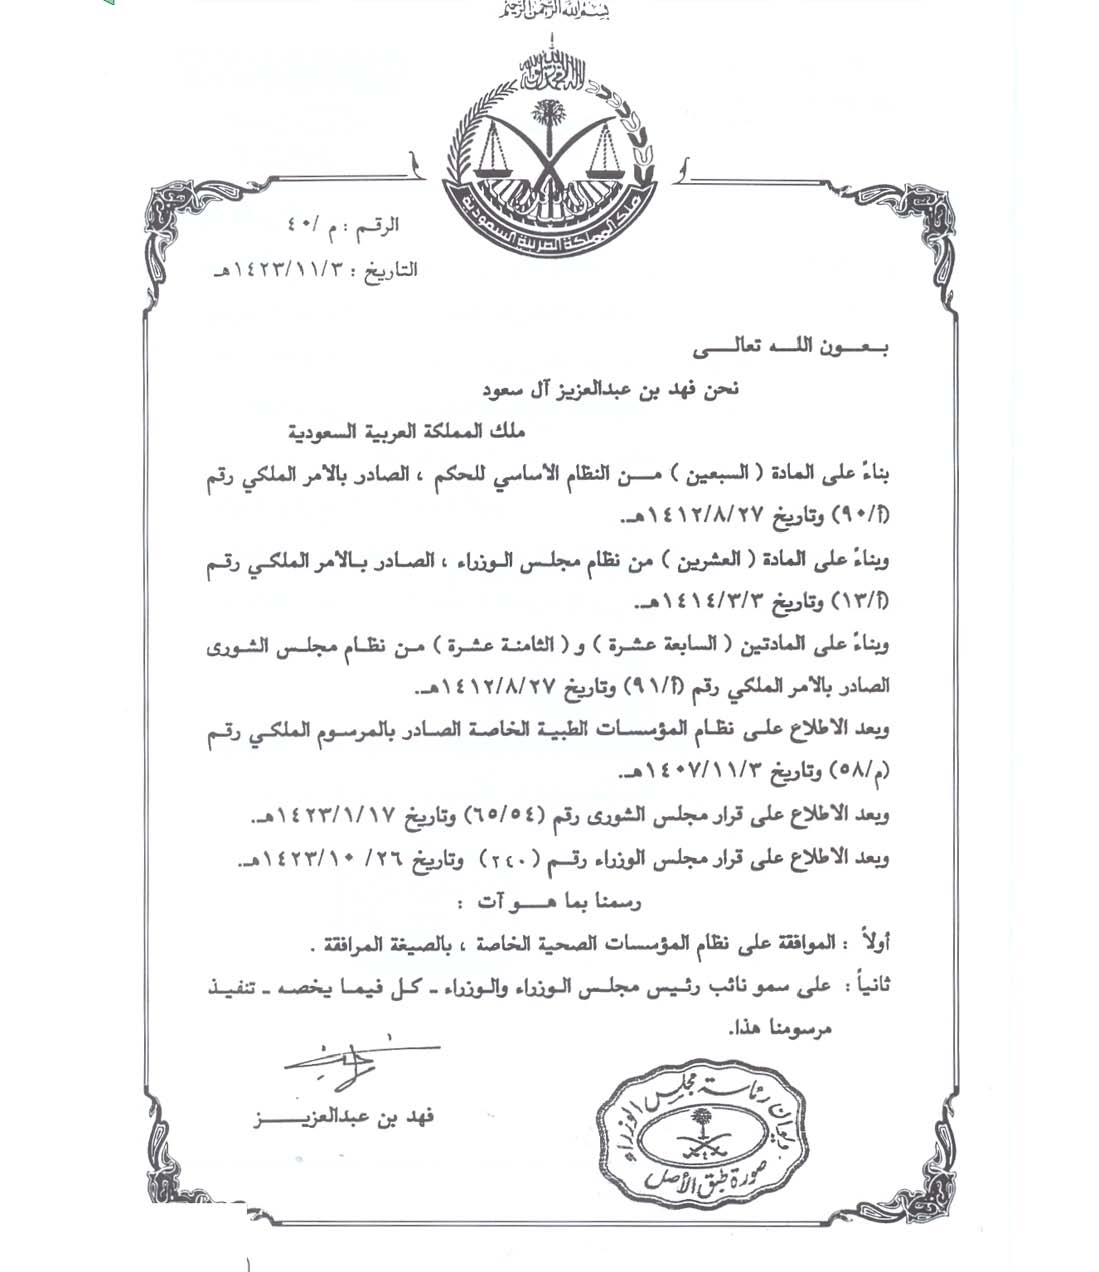 بسم الله الرحمن الرحيم
لا إله إلا الله محمد رسول الله
ملك المملكة العربية السعودية
الرقم : م /٤٠
التاريخ : ١٤٢٣/١١/٣هـ
بـعـــون اللــه تعالــــى
نحن فهد بن عبدالعزيز آل سعود
ملك المملكة العربية السعودية
بناءً على المادة ( السبعين ) مــن النظام الأساسي للحكم ، الصادر بالأمر الملكي رقم
(أ/٩٠) وتاريخ ١٤١٢/٨/٢٧هـ.
وبناءً على المادة ( العشرين ) من نظام مجلس الوزراء ، الصادر بالأمر الملكي رقم
(أ/١٣) وتاريخ ١٤١٤/٣/٣هـ.
وبناءً على المادتين ( السابعة عشرة ) و ( الثامنة عشرة ) من نظام مجلس الشورى
الصادر بالأمر الملكي رقم (أ/٩١) وتاريخ ١٤١٢/٨/٢٧هـ.
وبعد الاطلاع على نظام المؤسسات الطبية الخاصة الصادر بالمرسوم الملكي رقم
(م/٥٨) وتاريخ ١٤٠٧/١١/٣هـ.
وبعد الاطلاع على قرار مجلس الشورى رقم (٦٥/٥٤) وتاريخ ١٤٢٣/١/١٧هـ.
وبعد الاطلاع على قرار مجلس الوزراء رقـم (٢٤٠) وتاريخ ٢٦/ ١٤٢٣/١٠هـ.
رسمنا بما هـــو آت :
أولاً : الموافقة على نظام المؤسسات الصحية الخاصة ، بالصيغة المرافقة .
ثانياً : على سمو نائب رئيس مجلس الوزراء والوزراء ـ كل فيما يخصه ـ تنفيذ
مرسومنا هذا.
فهد بن عبدالعزيـــــز
ديوان رئاسة مجلس الوزراء
صورة طبق الأصل